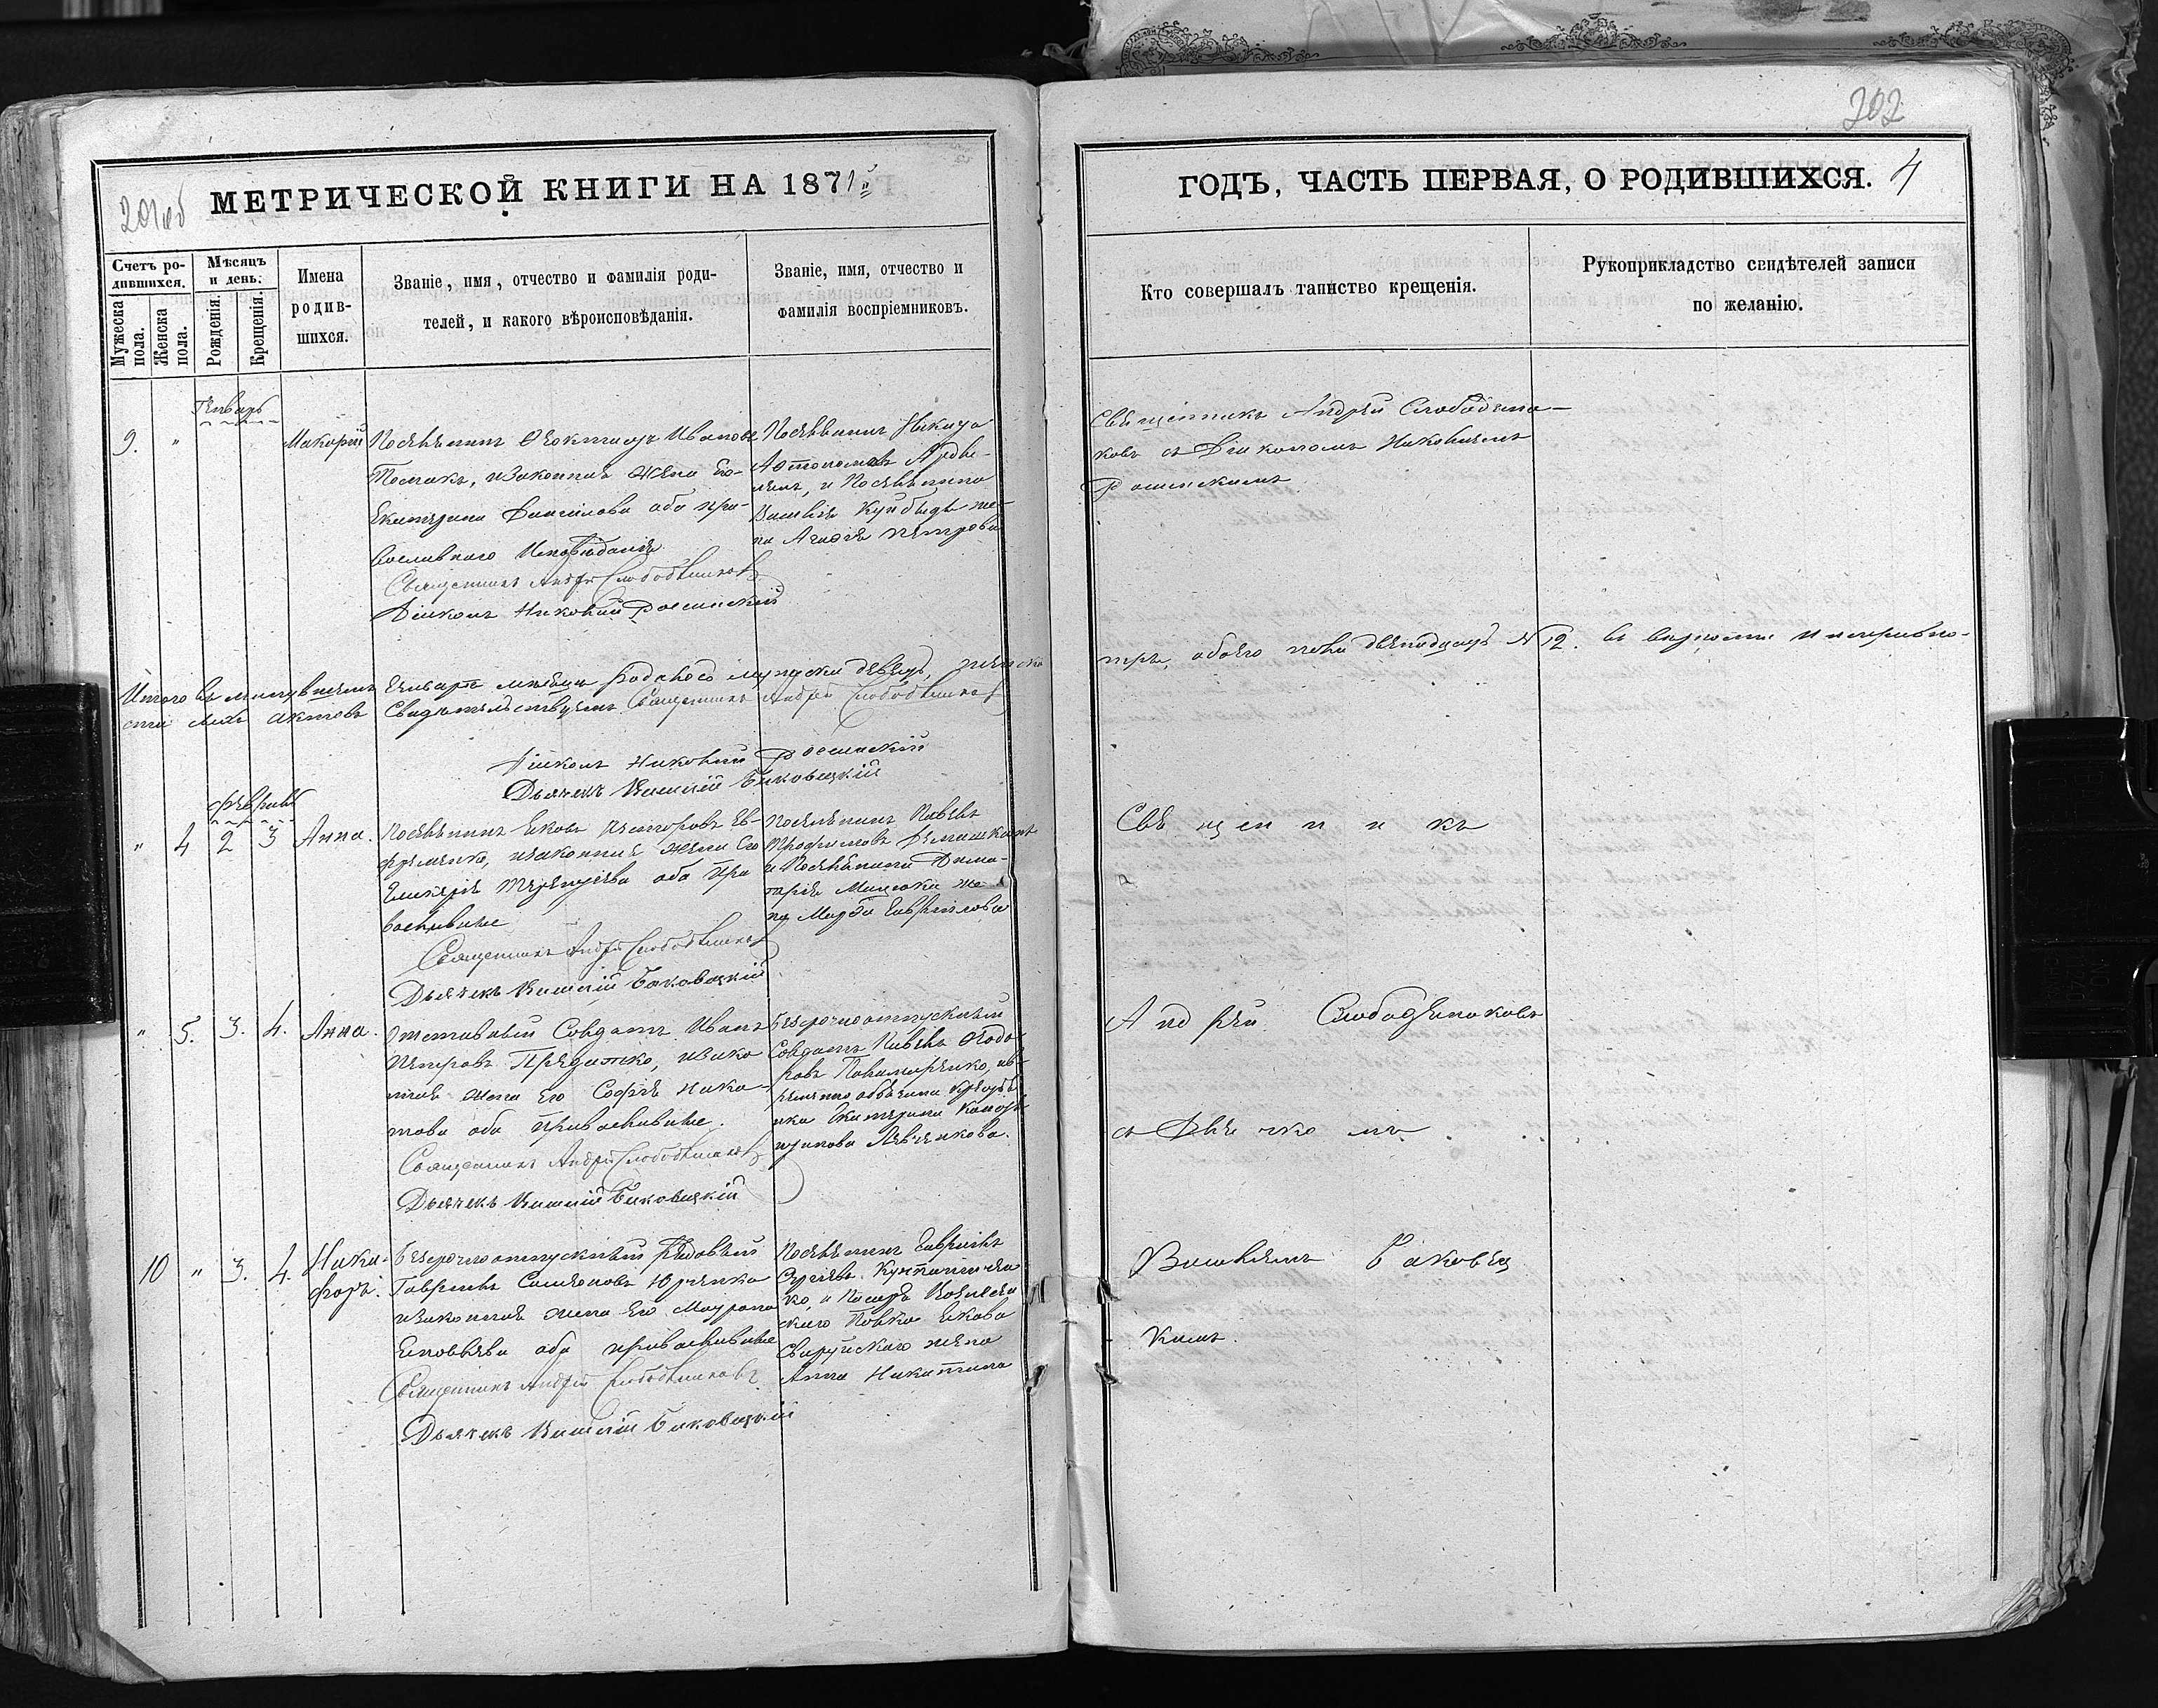 201об
МЕТРИЧЕСКОЙ КНИГИ НА 1871й
Счетъ ро-
дившихся.
Мужеска
пола.
Женска
пола.
Мѣсяцъ
и день.
Рожденія.
Крещенія.
Имена
родив-
шихся.
Званіе, имя, отчество и фамилія роди-
телей, и какого вѣроисповѣданія.
Званіе, имя, отчество и
фамилія воспріемниковъ.
Январь
9.
"
Макорій
Поселянинъ Феоктистъ Ивановъ
изаконная жена Его
Екатерина Данилова оба пра-
вославнаго Исповѣданія
Священникъ Андрей Слободяниковъ
Діиконъ Никонай Росинскій
Поселянинъ Никита
Автономовъ
и Поселянина
Василія Куйбыды же-
на Агафія Петрова
Итого въ минувшемъ Генварѣ мѣсяцѣ родилось мужеска девять, женска
сти сихъ актовъ Свидѣтельствуемъ Священникъ Андрей Слободяниковъ
Діиконъ Никонай Росинскій
Дьячекъ Василій Баковецкій
Февраль
" 4 2 3 Анна.
Поселянинъ Яковъ Несторовъ Еф-
ременко, изаконная жена Его
Гликерія Терентіева оба Пра
вославные
Священникъ Андрей Слободяниковъ
Дьячекъ Василій Баковецкій
Поселянинъ Павелъ
Трофимовъ
и Поселянина Дими-
трія же-
на Марфа Гаврилова
" 5. 3. 4. Анна.
Отставной Солдатъ Иванъ
Петровъ изако
нная жена Его Софія Ники-
това оба Православные.
Священникъ Андрей Слободяниковъ
Дьячекъ Василій Баковецкій
Безсрочноотпускный
Солдатъ Павелъ Федо-
ровъ Пономаренко, ив-
Екатерина
Левченкова.
10 " 3. 4. Ники-
форъ.
Безсрочноотпускный Рядовый
Гавріилъ Симеоновъ Юрченко
изаконная жена Его Маурона
оба православные
Священникъ Андрей Слободяниковъ
Дьячекъ Василій Баковецкій
Поселянинъ Гавріилъ
Сергіевъ
ко, и
скаго Полка Якова
Свирускаго жена
Анна Никитина
202
ГОДЪ, ЧАСТЬ ПЕРВАЯ, О РОДИВШИХСЯ. 4
Кто совершалъ таинство крещенія.
Рукоприкладство свидѣтелей записи
по желанію.
Священникъ Андрей Слободяни-
ковъ съ Діикономъ Никонаемъ
Росинскимъ
три, обоего пола двенадцать № 12. въ верности и исправно-
Священникъ
Андрей Слободяниковъ
съ Дьячкомъ
Василіемъ Баковец
кимъ.